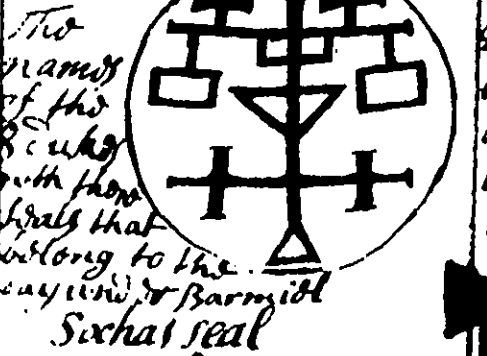 The
names
of the
Dukes
with there
seals that
belong to the
day under Barmiel
Sochas seal